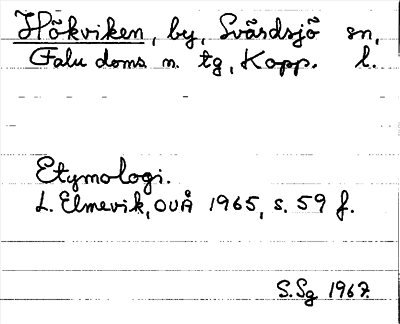 Hökviken, by, Svärdsjö sn,
Falu doms. n. tg, Kopp. l.
Etymologi.
L. Elmevik, OUÅ 1965, s. 59 f.
S.Sg 1967.